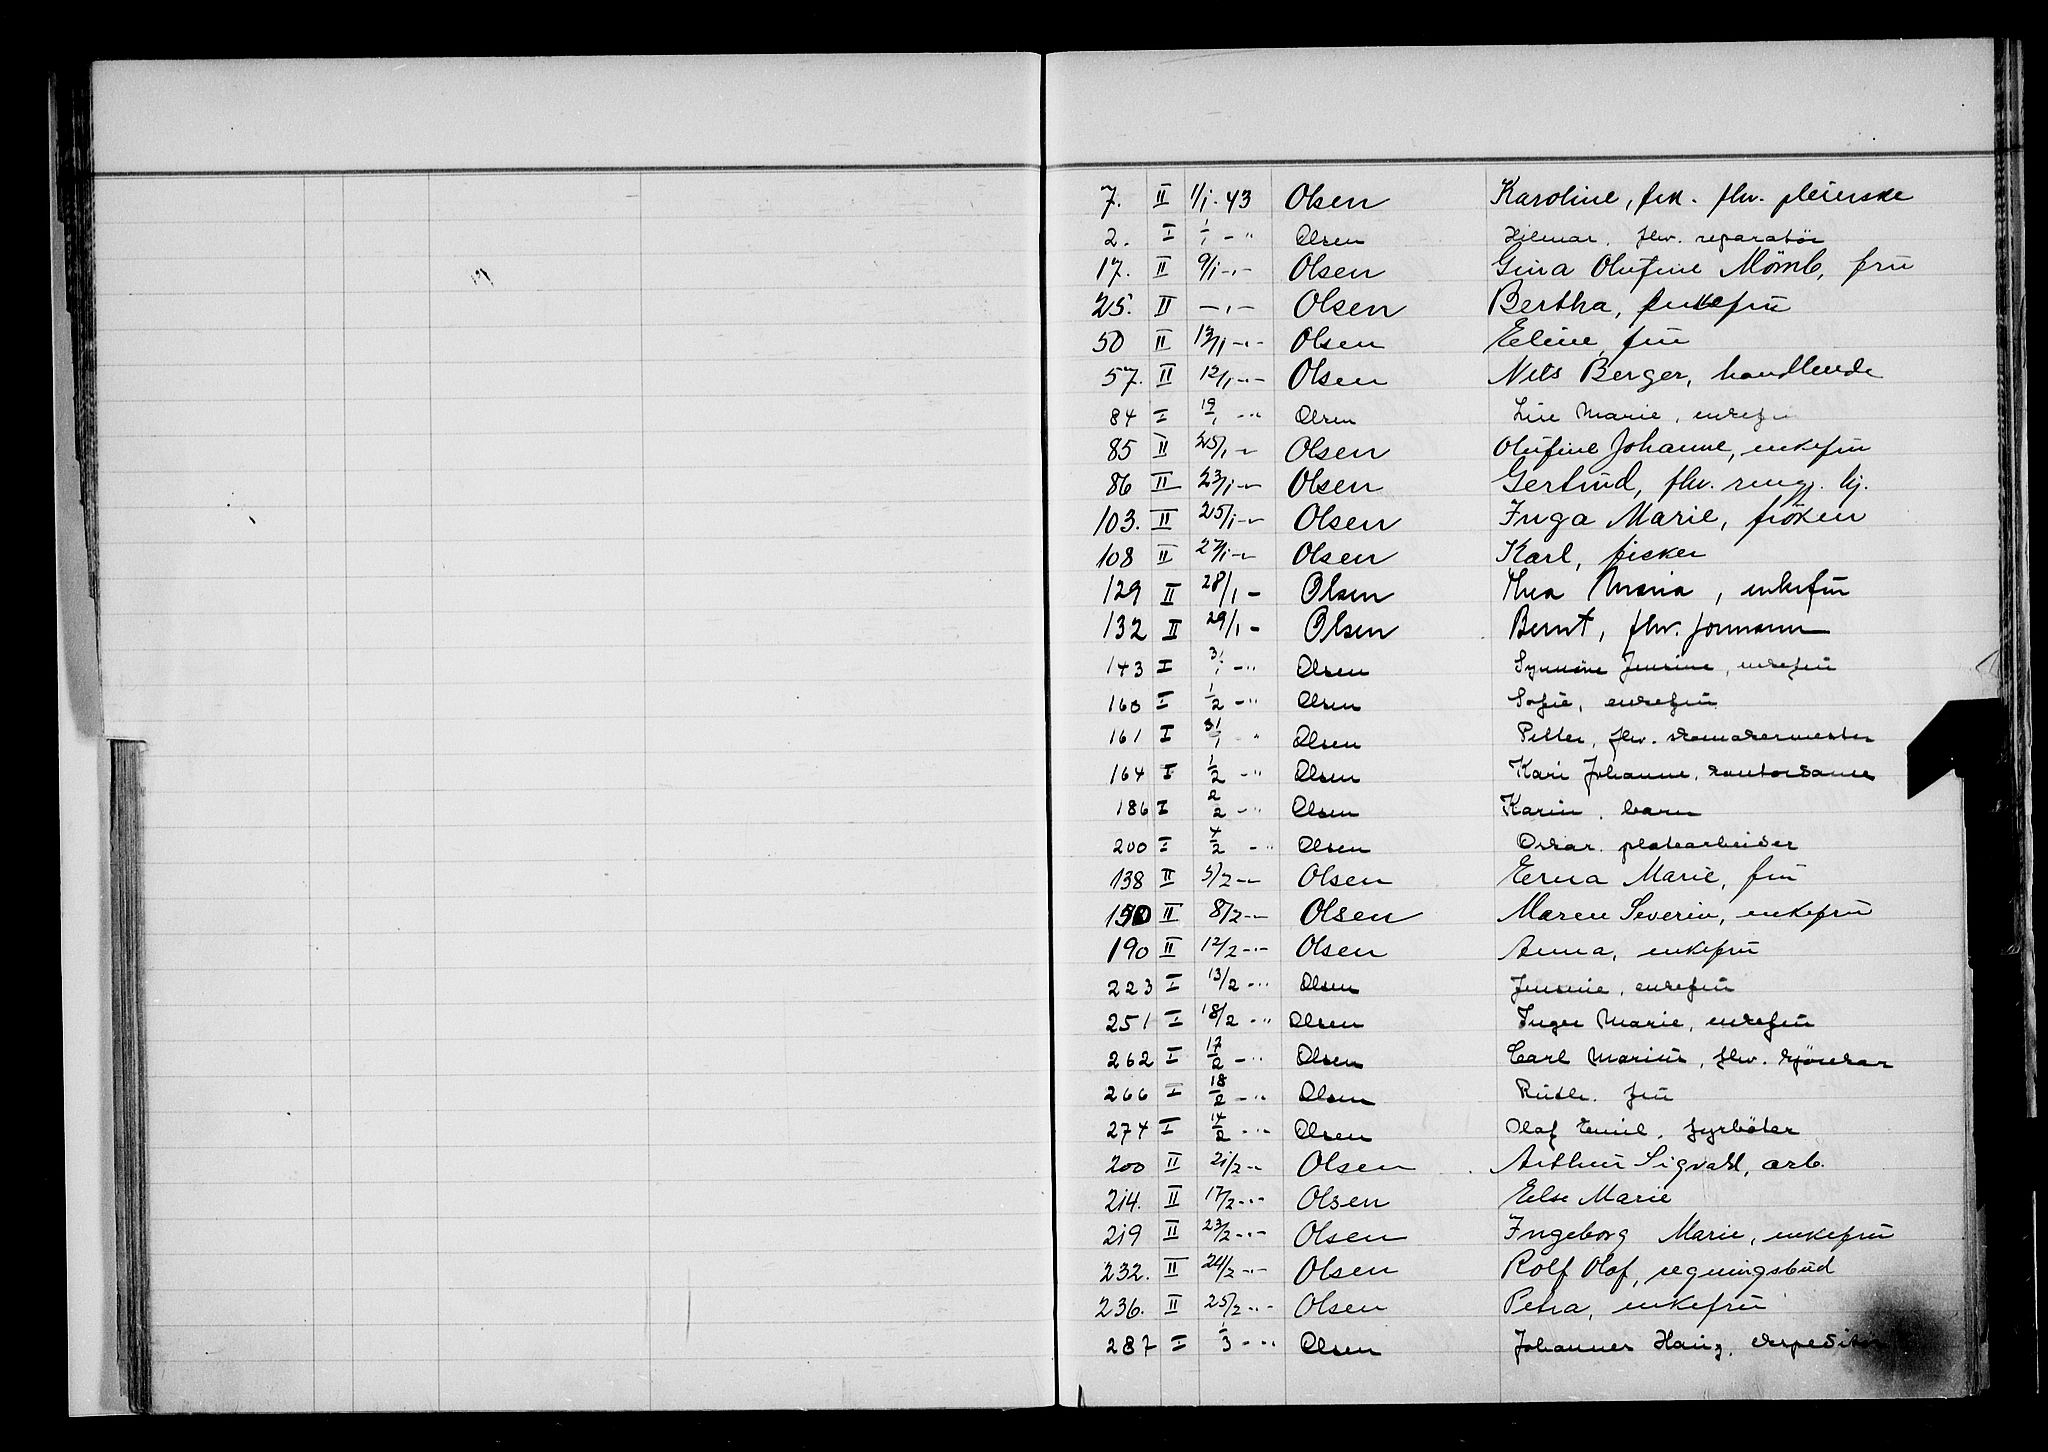 7. II 1/1-43 Olsen Karoline, frk. fhv. pleierske
2. I 1/1 - " Olsen Hilmar. fhv. reparatör
17. II 9/1 -"- Olsen Gina Olufine Mömb, fru
25. II -"- Olsen Bertha, enkefru
50 II 13/1 -"- Olsen Eline, fru
57. II 12/1 -"- Olsen Nils Berger, handlende
84 I 19/1 -" Olsen Line Marie, enkefru
85 II 25/1 -"- Olsen Olufine Johanne, enkefru
86 II 23/1 -"- Olsen Gertrud, fhv. rengj. hj.
103. II 25/1 -"- Olsen Inga Marie, fröken
108 II 27/1 -"- Olsen Karl, fisker
129 II 28/1 - Olsen Thea Maria, enkefru
132 II 29/1 - Olsen Bernt, fhv. formann
143 I 31/1 -" Olsen Synnöve Jensine, enkefru
160 I 1/2 -" Olsen Sofie, enkefru
161 I 31/1 " Olsen Petter, fhv. skomakermester
164 I 1/2 -" Olsen Kari Johanne, kontordame
186 I 2/2 -" Olsen Karin. barn
200 I 4/2 -" Olsen Oskar. platearbeider
138 II 5/2 -"- Olsen Erna Marie, fru
150 II 8/2 -"- Olsen Maren Severin, enkefru
190 II 12/2 -"- Olsen Anna, enkefru
223 I 13/2 -" Olsen Jensine, enkefru
251 I 18/2 -" Olsen Inger Marie, enkefru
262 I 17/2 -" Olsen Carl Marius, fhv. kjörekar
266 I 18/2 -" Olsen Ruth. fru
274 I 14/2 -" Olsen Olaf Emil. fyrböter
200 II 21/2 -"- Olsen Arthur Sigvald, arb.
214. II 17/2 -"- Olsen Else Marie
219 II 23/2 -"- Olsen Ingeborg Marie, enkefru
232. II 24/2 -"- Olsen Rolf Olaf, regningsbud
236. II 25/2 -"- Olsen Petra, enkefru
287 I 1/3 -" Olsen Johannes Haug, ekspeditör